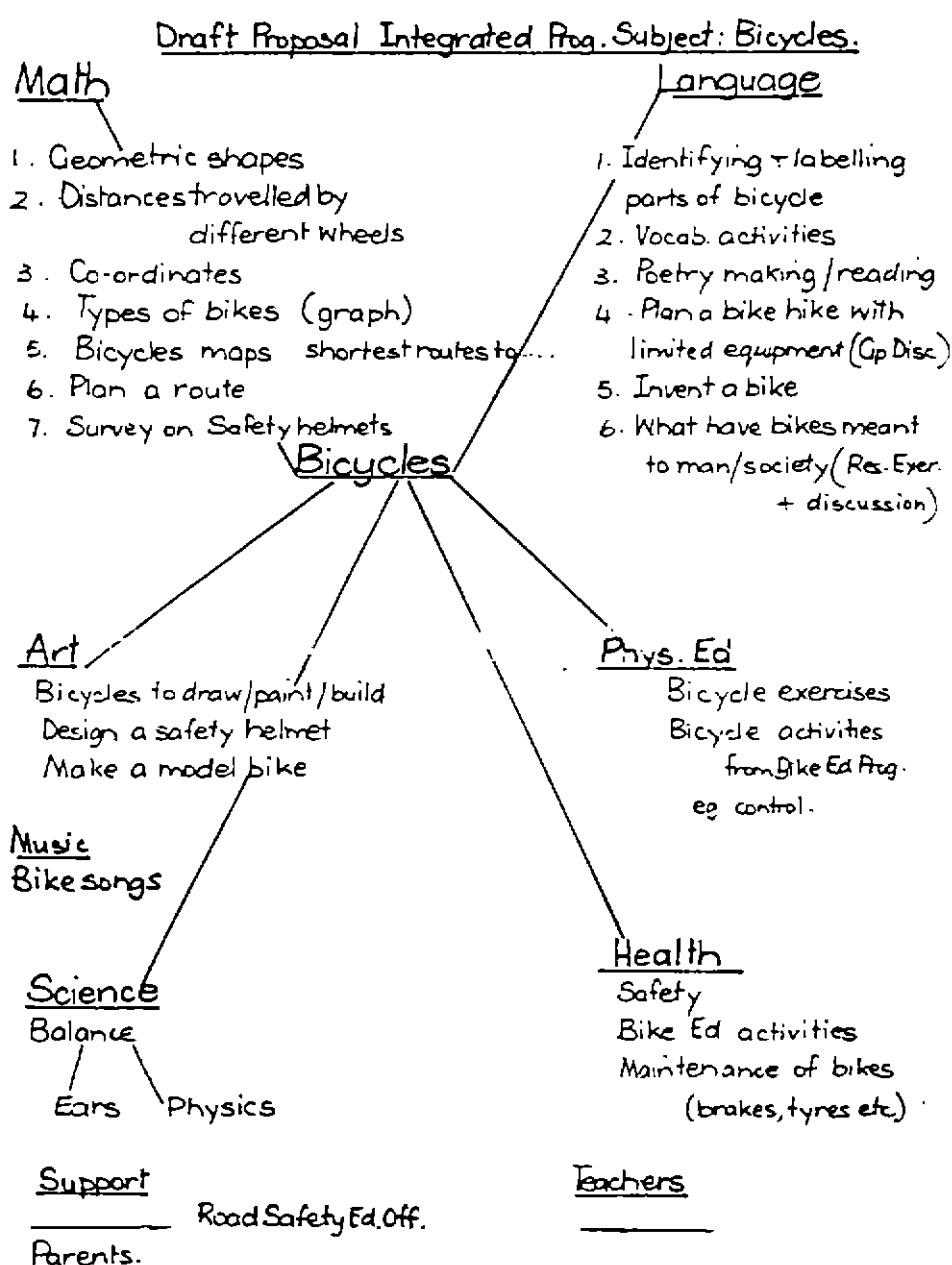 Draft Proposal Integrated Prog. Subject: Bicycles.
Math
1. Geometric shapes
2. Distances travelled by
different wheels
3. Co-ordinates
4. Types of bikes (graph)
5. Bicycles maps shortest routes to....
6. Plan a route
7. Survey on Safety helmets
Language
1. Identifying + labelling
parts of bicycle
2. Vocab. activities
3. Poetry making/reading
4. Plan a bike hike with
limited equipment (Gp Disc)
5. Invent a bike
6. What have bikes meant
to man/society (Res. Exer.
+ discussion)
Bicycles
Art
Bicycles to draw/paint/build
Design a safety helmet
Make a model bike
Phys. Ed
Bicycle exercises
Bicycle activities
from Bike Ed Prog.
eg control.
Music
Bike songs
Science
Balance
Ears Physics
Health
Safety
Bike Ed activities
Maintenance of bikes
(brakes, tyres etc.)
Support
Road Safety Ed. Off.
Parents.
Teachers